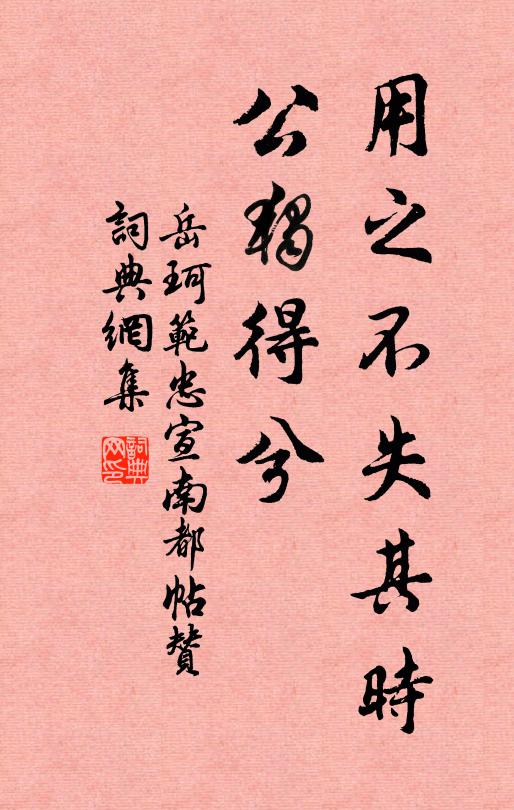 用之不失其時
公獨得兮
岳珂範忠宣南都帖贊
詞典網集
詞典網印